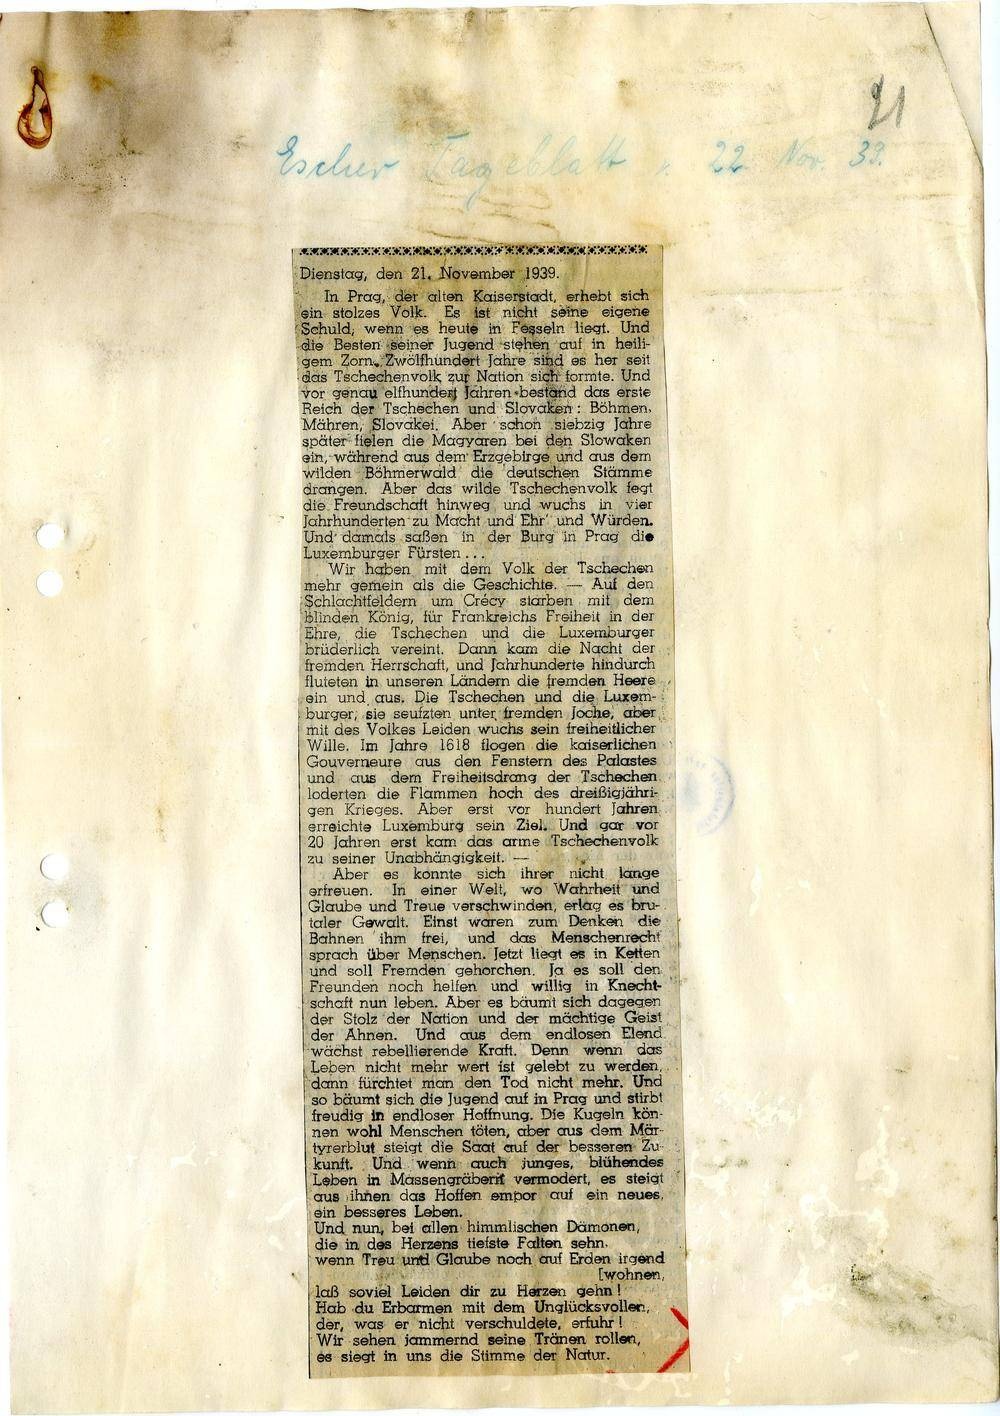 21
Escher Tageblatt v. 22 Nov. 39.
Dienstag, den 21. November 1939.
In Prag, der alten Kaiserstadt, erhebt sich
ein stolzes Volk. Es ist nicht seine eigene
Schuld, wenn es heute in Fesseln liegt. Und
die Besten seiner Jugend stehen auf in heili-
gem Zorn. Zwölfhundert Jahre sind es her seit
das Tschechenvolk zur Nation sich formte. Und
vor genau elfhundert Jahren bestand das erste
Reich der Tschechen und Slovaken: Böhmen,
Mähren, Slovakei. Aber schon siebzig Jahre
später fielen die Magyaren bei den Slowaken
ein, während aus dem Erzgebirge und aus dem
wilden Böhmerwald die deutschen Stämme
drangen. Aber das wilde Tschechenvolk fegt
die Freundschaft hinweg und wuchs in vier
Jahrhunderten zu Macht und Ehr' und Würden.
Und damals saßen in der Burg in Prag die
Luxemburger Fürsten...
Wir haben mit dem Volk der Tschechen
mehr gemein als die Geschichte. — Auf den
Schlachtfeldern um Crécy starben mit dem
blinden König, für Frankreichs Freiheit in der
Ehre, die Tschechen und die Luxemburger
brüderlich vereint. Dann kam die Nacht der
fremden Herrschaft, und Jahrhunderte hindurch
fluteten in unseren Ländern die fremden Heere
ein und aus. Die Tschechen und die Luxem-
burger, sie seufzten unter fremden Joche, aber
mit des Volkes Leiden wuchs sein freiheitlicher
Wille. Im Jahre 1618 flogen die kaiserlichen
Gouverneure aus den Fenstern des Palastes
und aus dem Freiheitsdrang der Tschechen
loderten die Flammen hoch des dreißigjähri-
gen Krieges. Aber erst vor hundert Jahren
erreichte Luxemburg sein Ziel. Und gar vor
20 Jahren erst kam das arme Tschechenvolk
zu seiner Unabhängigkeit. —
Aber es konnte sich ihrer nicht lange
erfreuen. In einer Welt, wo Wahrheit und
Glaube und Treue verschwinden, erlag es bru-
taler Gewalt. Einst waren zum Denken die
Bahnen ihm frei, und das Menschenrecht
sprach über Menschen. Jetzt liegt es in Ketten
und soll Fremden gehorchen. Ja es soll den
Freunden noch helfen und willig in Knecht-
schaft nun leben. Aber es bäumt sich dagegen
der Stolz der Nation und der mächtige Geist
der Ahnen. Und aus dem endlosen Elend
wächst rebellierende Kraft. Denn wenn das
Leben nicht mehr wert ist gelebt zu werden,
dann fürchtet man den Tod nicht mehr. Und
so bäumt sich die Jugend auf in Prag und stirbt
freudig in endloser Hoffnung. Die Kugeln kön-
nen wohl Menschen töten, aber aus dem Mär-
tyrerblut steigt die Saat auf der besseren Zu-
kunft. Und wenn auch junges, blühendes
Leben in Massengräbern vermodert, es steigt
aus ihnen das Hoffen empor auf ein neues,
ein besseres Leben.
Und nun, bei allen himmlischen Dämonen,
die in des Herzens tiefste Falten sehn,
wenn Treu und Glaube noch auf Erden irgend
[wohnen,
laß soviel Leiden dir zu Herzen gehn!
Hab du Erbarmen mit dem Unglücksvollen,
der, was er nicht verschuldete, erfuhr!
Wir sehen jammernd seine Tränen rollen,
es siegt in uns die Stimme der Natur.